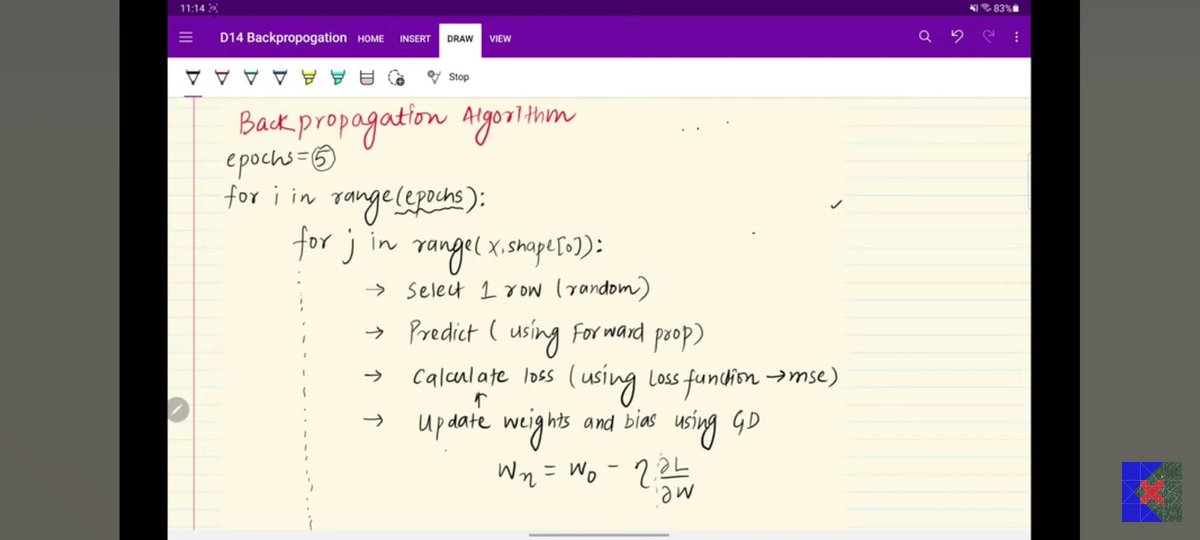 11:14 83%
D14 Backpropogation HOME INSERT DRAW VIEW
Stop
Backpropagation Algorithm
epochs=5
for i in range(epochs):
for j in range(x.shape[0]):
→ Select 1 row (random)
→ Predict (using Forward prop)
→ Calculate loss (using Loss function → mse)
→ Update weights and bias using GD
Wn = Wo - η ∂L/∂W